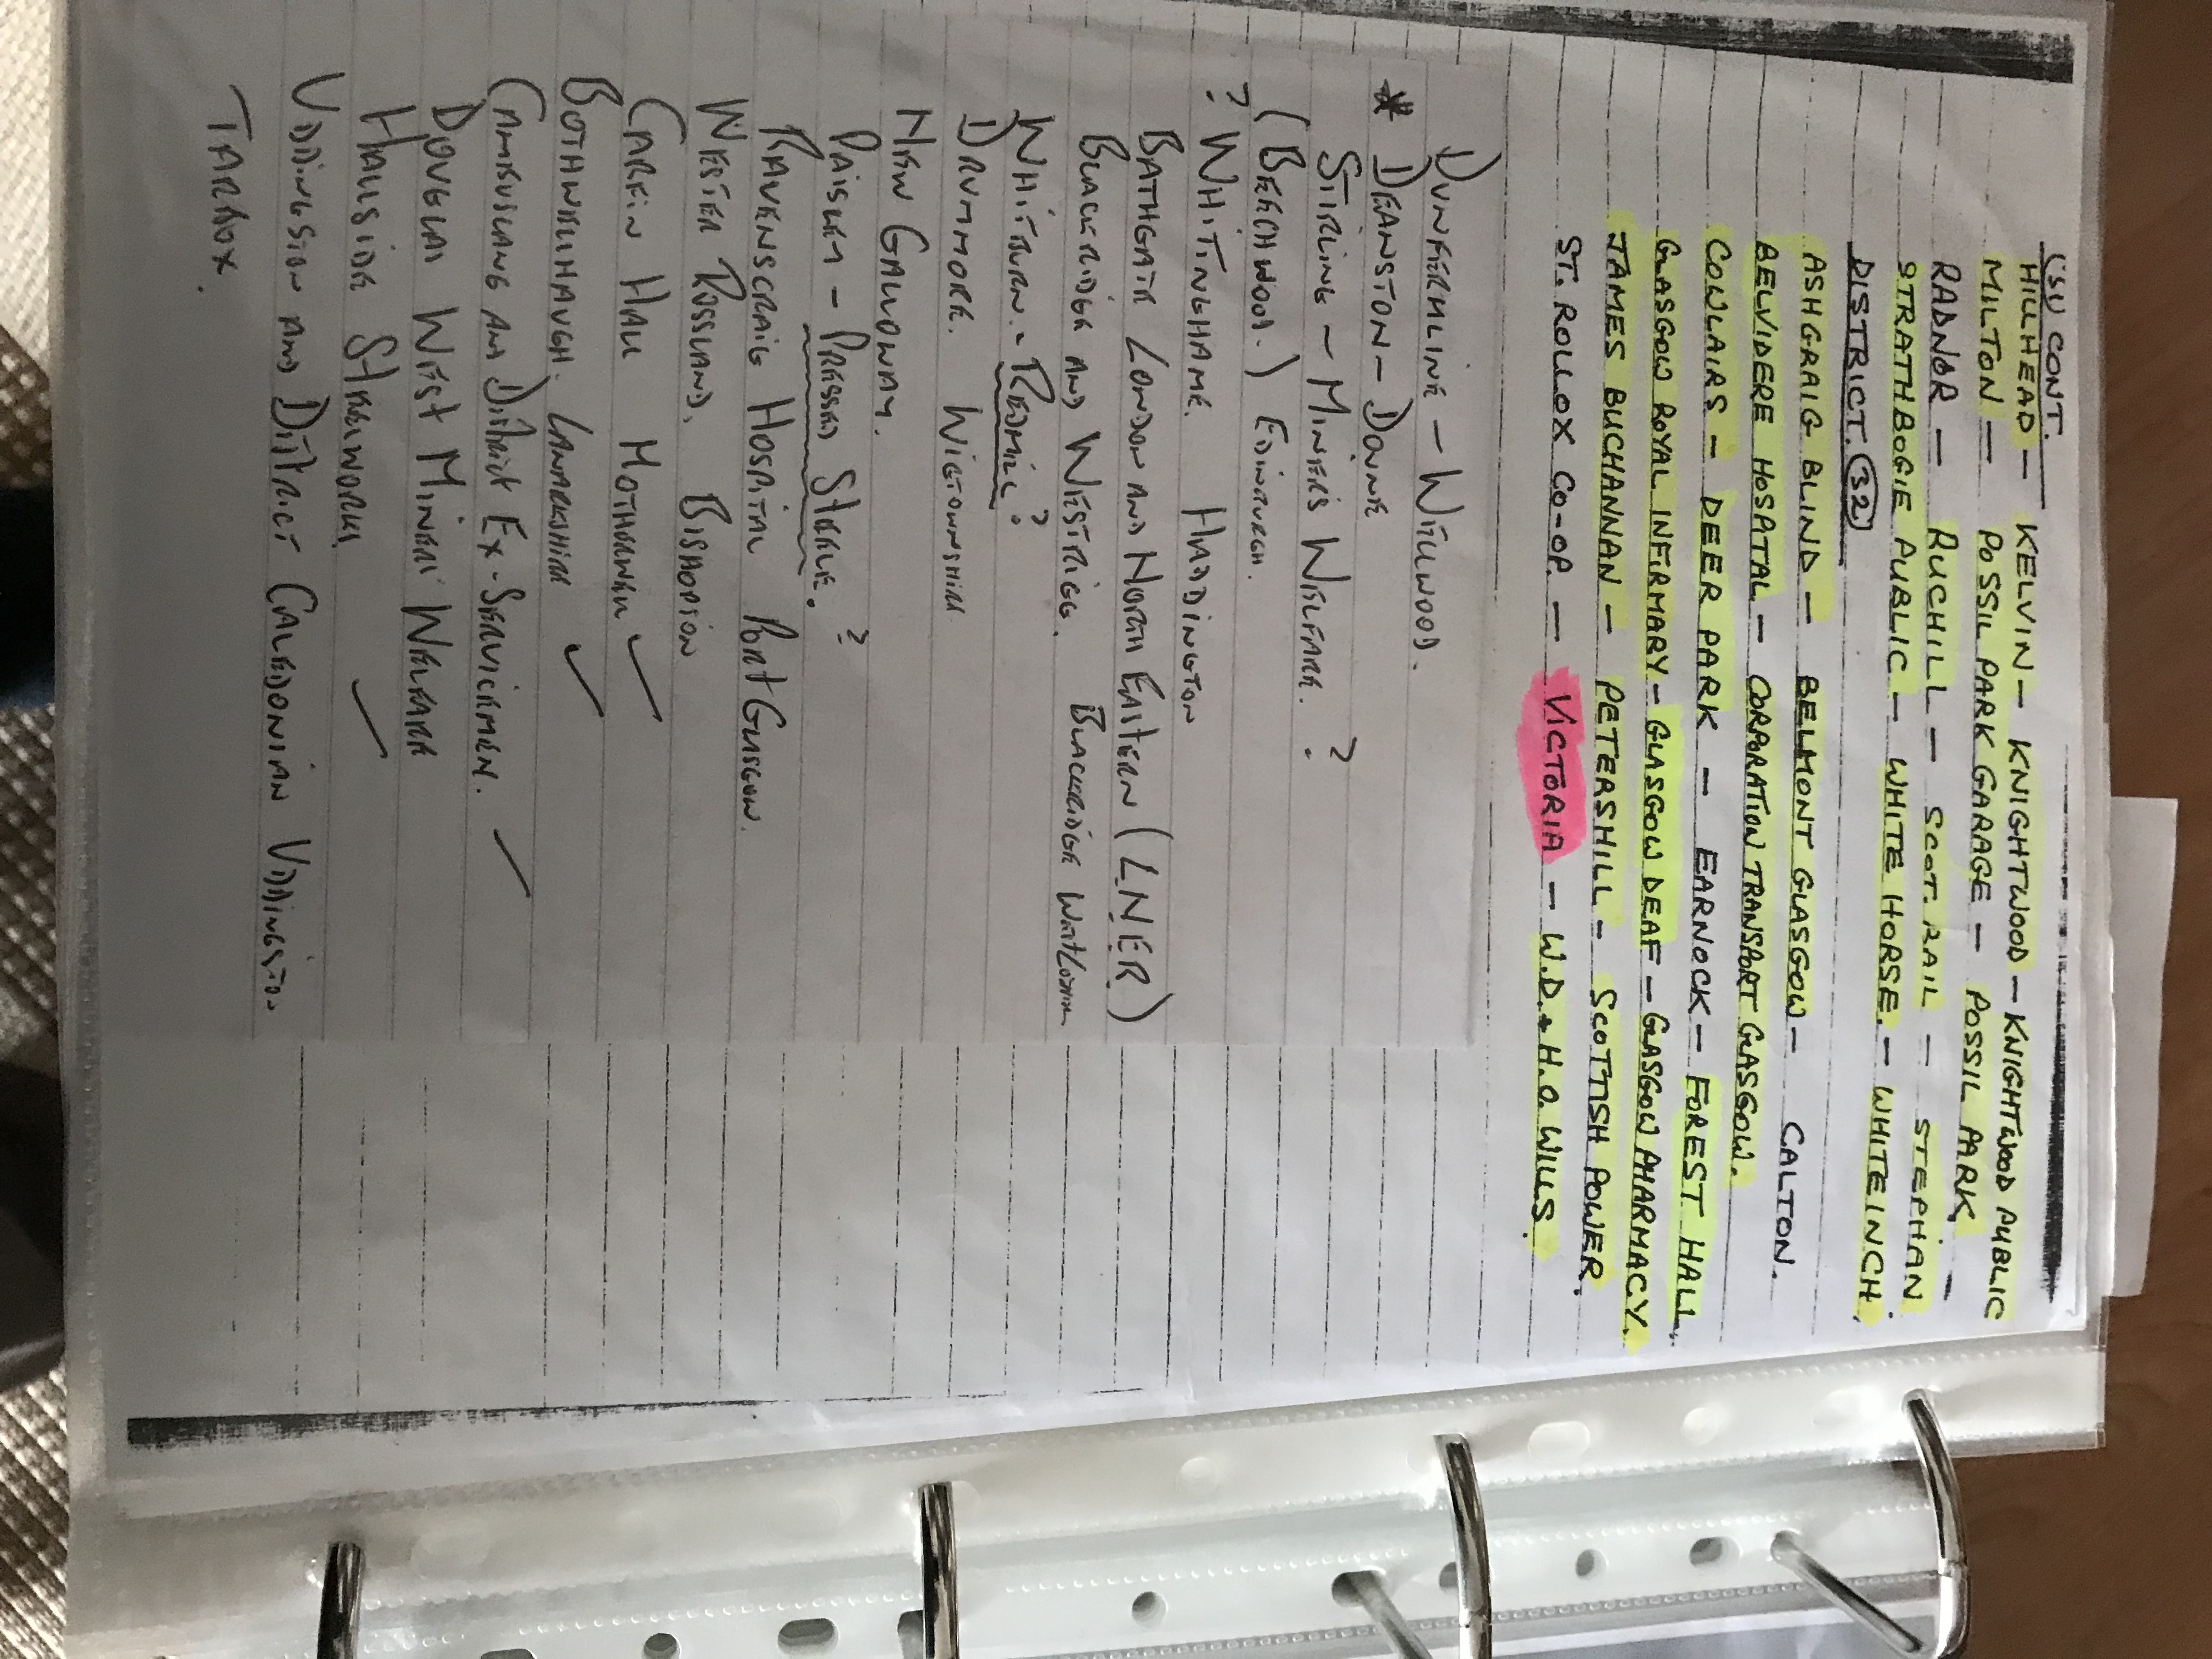 (SU CONT.
HILLHEAD — KELVIN — KNIGHTWOOD — KNIGHTWOOD PUBLIC
MILTON — POSSIL PARK GARAGE — POSSIL PARK
RADNOR — RUCHILL — SCOT. RAIL — STEPHAN —
STRATHBOGIE PUBLIC — WHITE HORSE. — WHITEINCH.
DISTRICT. 32
ASHGRAIG BLIND — BELMONT GLASGOW — CALTON.
BELVIDERE HOSATAL — CORPORATION TRANSPORT GLASGOW.
COWLAIRS — DEER PARK — EARNOCK — FOREST HALL.
GLASGOW ROYAL INFIRMARY — GLASGOW DEAF — GLASGOW PHARMACY.
JAMES BUCHANNAN — PETERSHILL — SCOTTISH POWER.
ST. ROLLOX CO-OP. — VICTORIA — W.D. & H.O. WILLS.
DUNFERMLINE — WELLWOOD.
* DEANSTON — DOUNE
STIRLING — MINERS WELFARE. ?
(BEECHWOOD.) EDINBURGH.
? WHITINGHAME. HADDINGTON
BATHGATE LONDON AND NORTH EASTERN (LNER)
BLACKRIDGE AND WESTRIGG. BLACKRIDGE WEST LOTHIAN
WHITBURN. - REDMILL ?
DRUMMORE. WIGTOWNSHIRE
NEW GALLOWAY.
PAISLEY - PRESSED STEELE. ?
RAVENSCRAIG HOSPITAL PORT GLASGOW.
WESTER ROSSLAND. BISHOPTON
CARFIN HALL MOTHERWELL ✓
BOTHWELLHAUGH. LANARKSHIRE ✓
CAMBUSLANG AND DISTRICT EX-SERVICEMEN. ✓
DOUGLAS WEST MINERS WELFARE
HALLSIDE STEELWORKS ✓
UDDINGSTON AND DISTRICT CALEDONIAN UDDINGSTON
TARBOX.